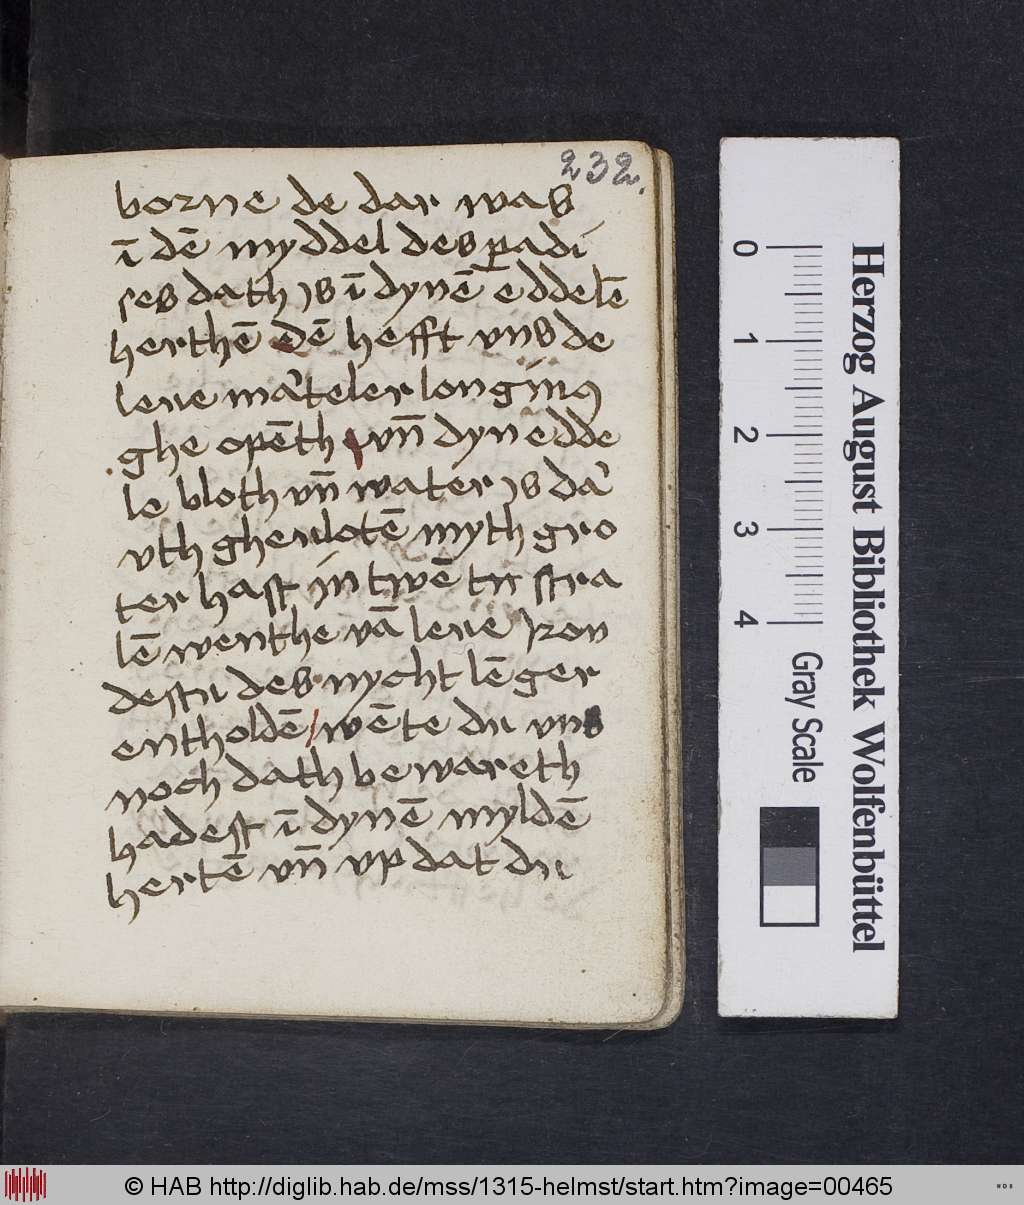 232.
borne de dar was
ī dē myddel des ꝑadi
ses dath is ī dynē eddelē
herthē dē hefft vns de
leue mar̄teler longinꝰ
ghe opēth / vn̄ dyn edde
le bloth vn̄ water is dar̄
vth ghevlotē myth gro
ter hast in twē tu stra
lē wenthe vā leue kon
destu des nycht lēger
entholdē / wēte du vns
noch dath bewareth
hadest ī dynē myldē
hertē vn̄ vp dat du
Herzog August Bibliothek Wolfenbüttel
0 1 2 3 4
Gray Scale
© HAB http://diglib.hab.de/mss/1315-helmst/start.htm?image=00465